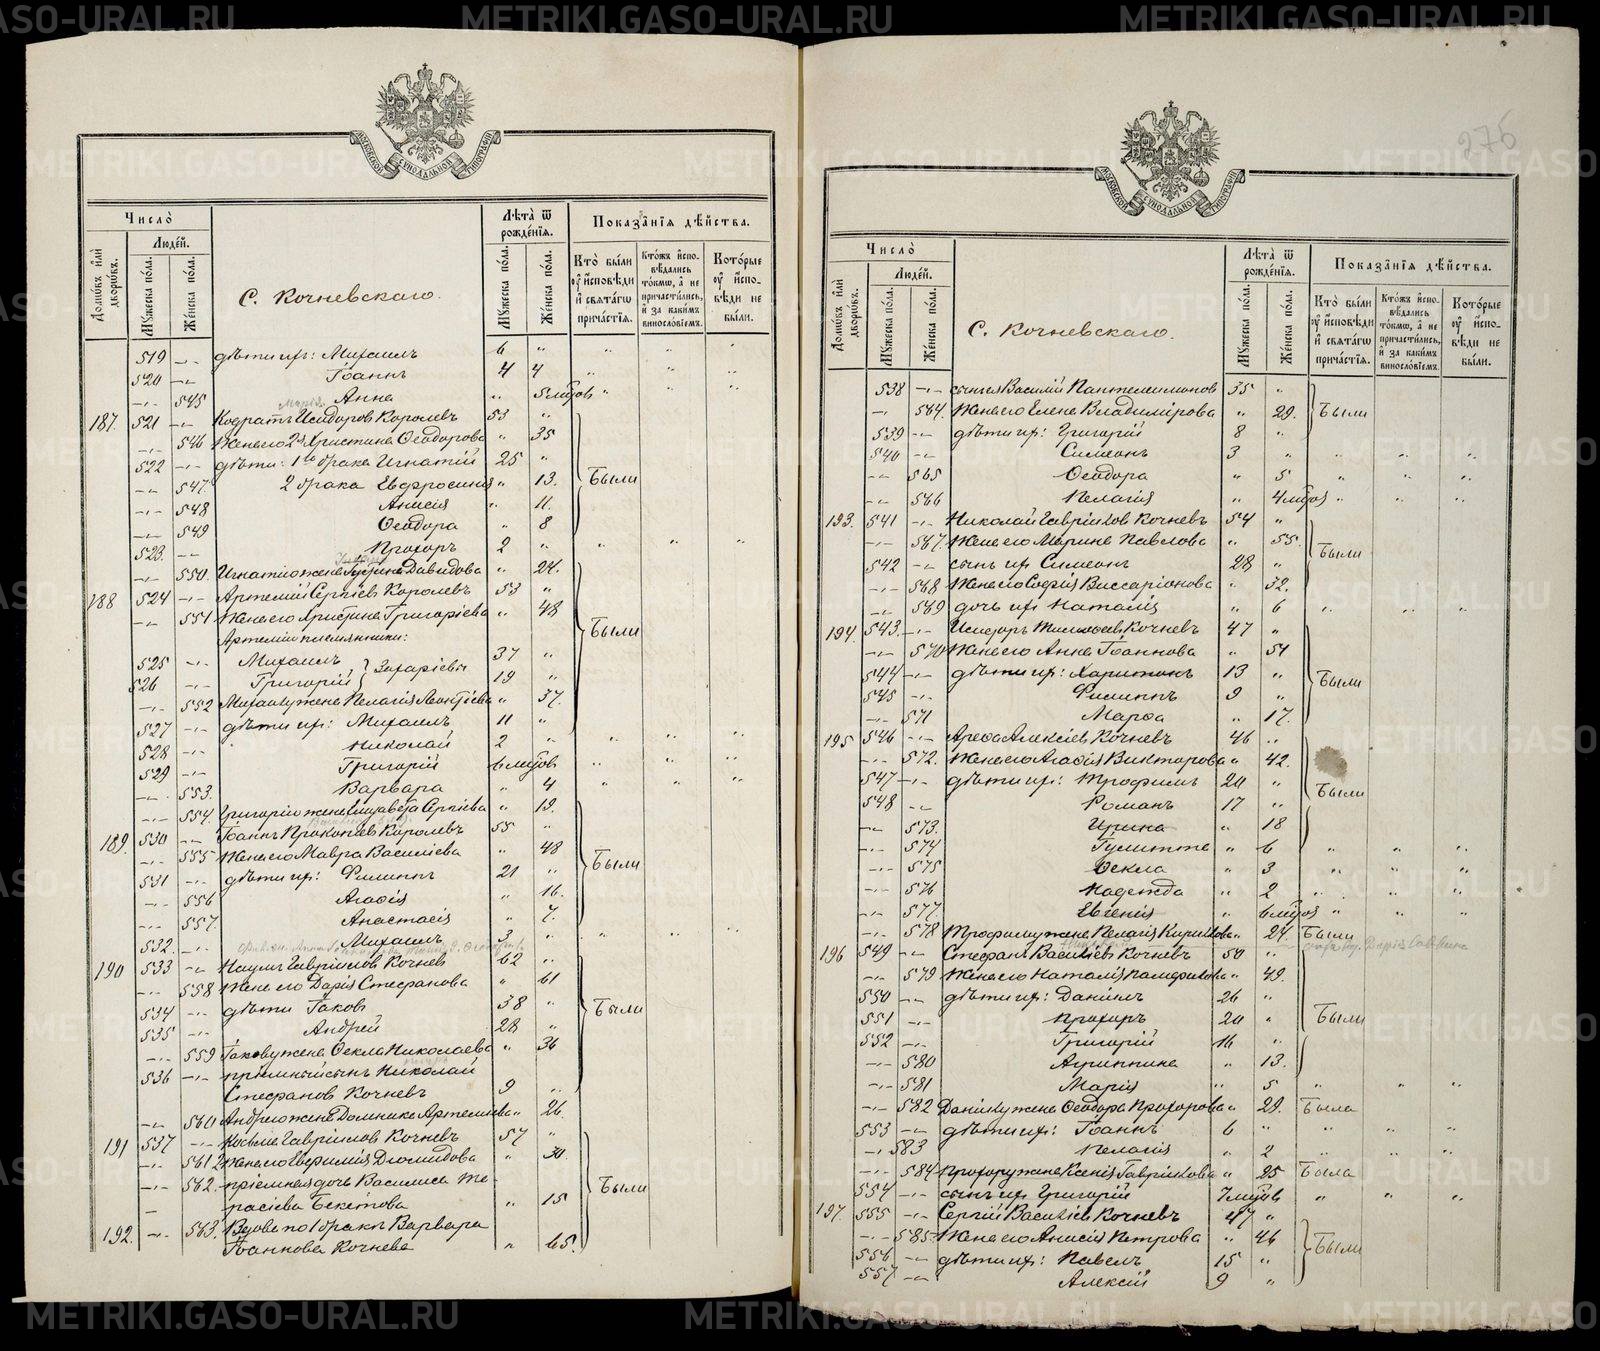 МОСКОВСКОЙ СУНОДАЛЬНОЙ ТИПОГРАФІИ
Число̀
Лѣта̀ ѿ рожде́нїѧ.
Показа̑нїѧ дѣ́йства.
Домѡ́въ и҆лѝ дворѡ́въ.
Люде́й.
Мꙋ́жеска по́ла.
Же́нска по́ла.
Мꙋ́жеска по́ла.
Же́нска по́ла.
Кто̀ бы́ли ᲂу҆ и҆́сповѣди и҆ свѧта́гѡ причаⷭ҇тїѧ.
Кто́жъ и҆спо-вѣ́дались то́кмѡ, а҆ не причасти́лись, и҆ за каки́мъ винослов́їемъ.
Кото́рые ᲂу҆ и҆́спо-вѣди не бы́ли.
С. Кочневскаго.
519 -„- дѣти их: Михаилъ 6 „ „ „ „
520 -„- Іоаннъ 4 „ „ „
-„- 545 Анна „ 5 мѣсяцов „
187. 521 -„- Кодратъ Исидоров Королевъ 53 „
-„- 546 Жена его 2я Христина Ѳеодорова „ 35
522 -„- дѣти: 1го брака Игнатій 25 „
-„- 547. 2 брака Евфросинія „ 13. Были
-„- 548 Анисія „ 11.
-„- 549 Ѳеодора „ 8
523. -„- Прохоръ 2 „ „ „ „
-„- 550. Игнатію жена Давидова „ 24.
188 524 -„- Артемій Сергіев Королевъ 53 „
-„- 551 Жена его Христина Григоріева „ 48
Артемія племянники: Были
525 -„- Михаилъ 37 „
526 -„- Григорій } Захаріевы 19 „
-„- 552 Михаилу жена Пелагія Леонтіева „ 37.
527 -„- дѣти их: Михаилъ 11 „
528 -„- Николай 2 „ „ „ „
529 -„- Григорій 6 мѣсяцов „ „ „
-„- 553. Варвара „ 4 „ „ „
-„- 554. Григорію жена Елизавета Сергіева „ 19.
189. 530 -„- Іоаннъ Прокопіев Королевъ 55 „
-„- 555 Жена его Мавра Василіева „ 48 Были
531 -„- дѣти их: Филиппъ 21 „
-„- 556 Агафія „ 16.
-„- 557. Анастасія „ 7.
532. -„- Михаилъ 3 „ „ „ „
190 533 -„- Наумъ Гавріилов Кочнев 62 „
-„- 558 Жена его Дарія Стефанова „ 61
534 -„- дѣти Іаковъ 38 „ Были
535 -„- Андрей 28 „
-„- 559 Іакову жена Ѳекла Николаева „ 36
536 -„- пріемный сынъ Николай
Стефанов Кочневъ 9 „
-„- 560 Андрею жена Домника Артемьева „ 26.
191 537 -„- Косьма Гавріилов Кочневъ 57 „
-„- 561 2 Жена его Евфимія Діомидова „ 30.
-„- 562. пріемная дочь Василиса Та- Были
расіева Бекетова „ 15
192. -„- 563. Вдова по 1 бракѣ Варвара
Іоаннова Кочнева „ 65.
276
МОСКОВСКОЙ СУНОДАЛЬНОЙ ТИПОГРАФІИ
Число̀
Лѣта̀ ѿ рожде́нїѧ.
Показа̑нїѧ дѣ́йства.
Домѡ́въ и҆лѝ дворѡ́въ.
Люде́й.
Мꙋ́жеска по́ла.
Же́нска по́ла.
Мꙋ́жеска по́ла.
Же́нска по́ла.
Кто̀ бы́ли ᲂу҆ и҆́сповѣди и҆ свѧта́гѡ причаⷭ҇тїѧ.
Кто́жъ и҆спо-вѣ́дались то́кмѡ, а҆ не причасти́лись, и҆ за каки́мъ винослов́їемъ.
Кото́рые ᲂу҆ и҆́спо-вѣди не бы́ли.
С. Кочневскаго.
538 -„- сынъ ея Василій Пантелеимонов 35 „
-„- 564. Жена его Елена Владимірова „ 29. Были
539 -„- дѣти их: Григорій 8 „
540 -„- Симеонъ 3 „ „ „ „
-„- 565 Ѳеодора „ 5 „ „ „
-„- 566 Пелагія „ 4 мѣсяцов „ „ „
193. 541 -„- Николай Гавріилов Кочневъ 54 „
-„- 567. Жена его Марина Павлова „ 55. Были
542 -„- сынъ их Симеонъ 28 „
-„- 568 Жена его Софія Виссаріонова „ 32.
-„- 569 дочь их Наталія „ 6 „ „ „
194 543. -„- Исидоръ Кочневъ 47 „
-„- 570 Жена его Анна Іоаннова „ 51
544 -„- дѣти их: Харитонъ 13 „ Были
545 -„- Филиппъ 9 „
-„- 571 Марѳа „ 17.
195 546 -„- Арефа Алексіев Кочневъ 46 „
-„- 572. Жена его Агафія Викторова „ 42.
547 -„- дѣти их: Трофимъ 20 „ Были
548 -„- Романъ 17 „
-„- 573. Ирина „ 18
-„- 574 Іулитта „ 6 „ „ „
-„- 575 Ѳекла „ 3 „ „ „
-„- 576 Надежда „ 2 „ „ „
-„- 577. Евгенія „ 6 мѣсяцов „ „ „
-„- 578 Трофиму жена Пелагія Кирилова „ 24. Были
196 549 -„- Стефанъ Василіев Кочневъ 50 „
-„- 579 Жена его Наталія Панфилова „ 49.
550 -„- дѣти их: Даніилъ 26 „
551 -„- Прохоръ 20 „ Были
552 -„- Григорій 16 „
-„- 580 Агриппина „ 13.
-„- 581 Марія „ 5 „ „ „
-„- 582 Даніилу жена Ѳеодора Прохорова „ 29. Была
553 -„- дѣти их: Іоаннъ 6 „ „ „ „
-„- 583 Пелагія „ 2 „ „ „
-„- 584 Прохору жена Ксенія Гавриилова „ 25 Была
554 -„- сынъ их Григорій 7 мѣсяцов „ „ „
197. 555 -„- Сергій Василіев Кочневъ 47 „
-„- 585 Жена его Анисія Петрова „ 46 Были
556 -„- дѣти их: Павелъ 15 „
557 -„- Алексій 9 „
METRIKI.GASO-URAL.RU